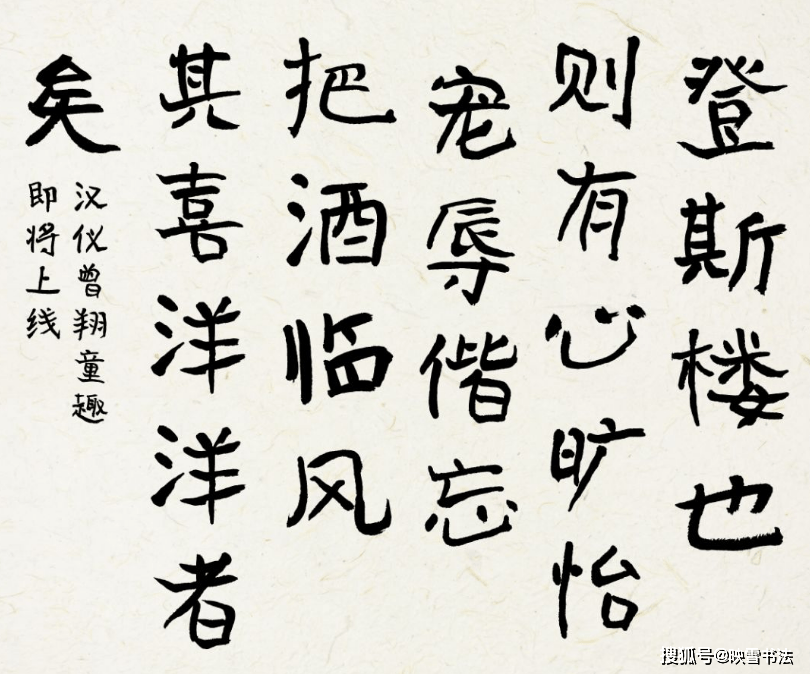 登斯楼也
则有心旷怡
宠辱偕忘
把酒临风
其喜洋洋者
矣
汉仪曾翔童趣
即将上线
搜狐号@映雪书法